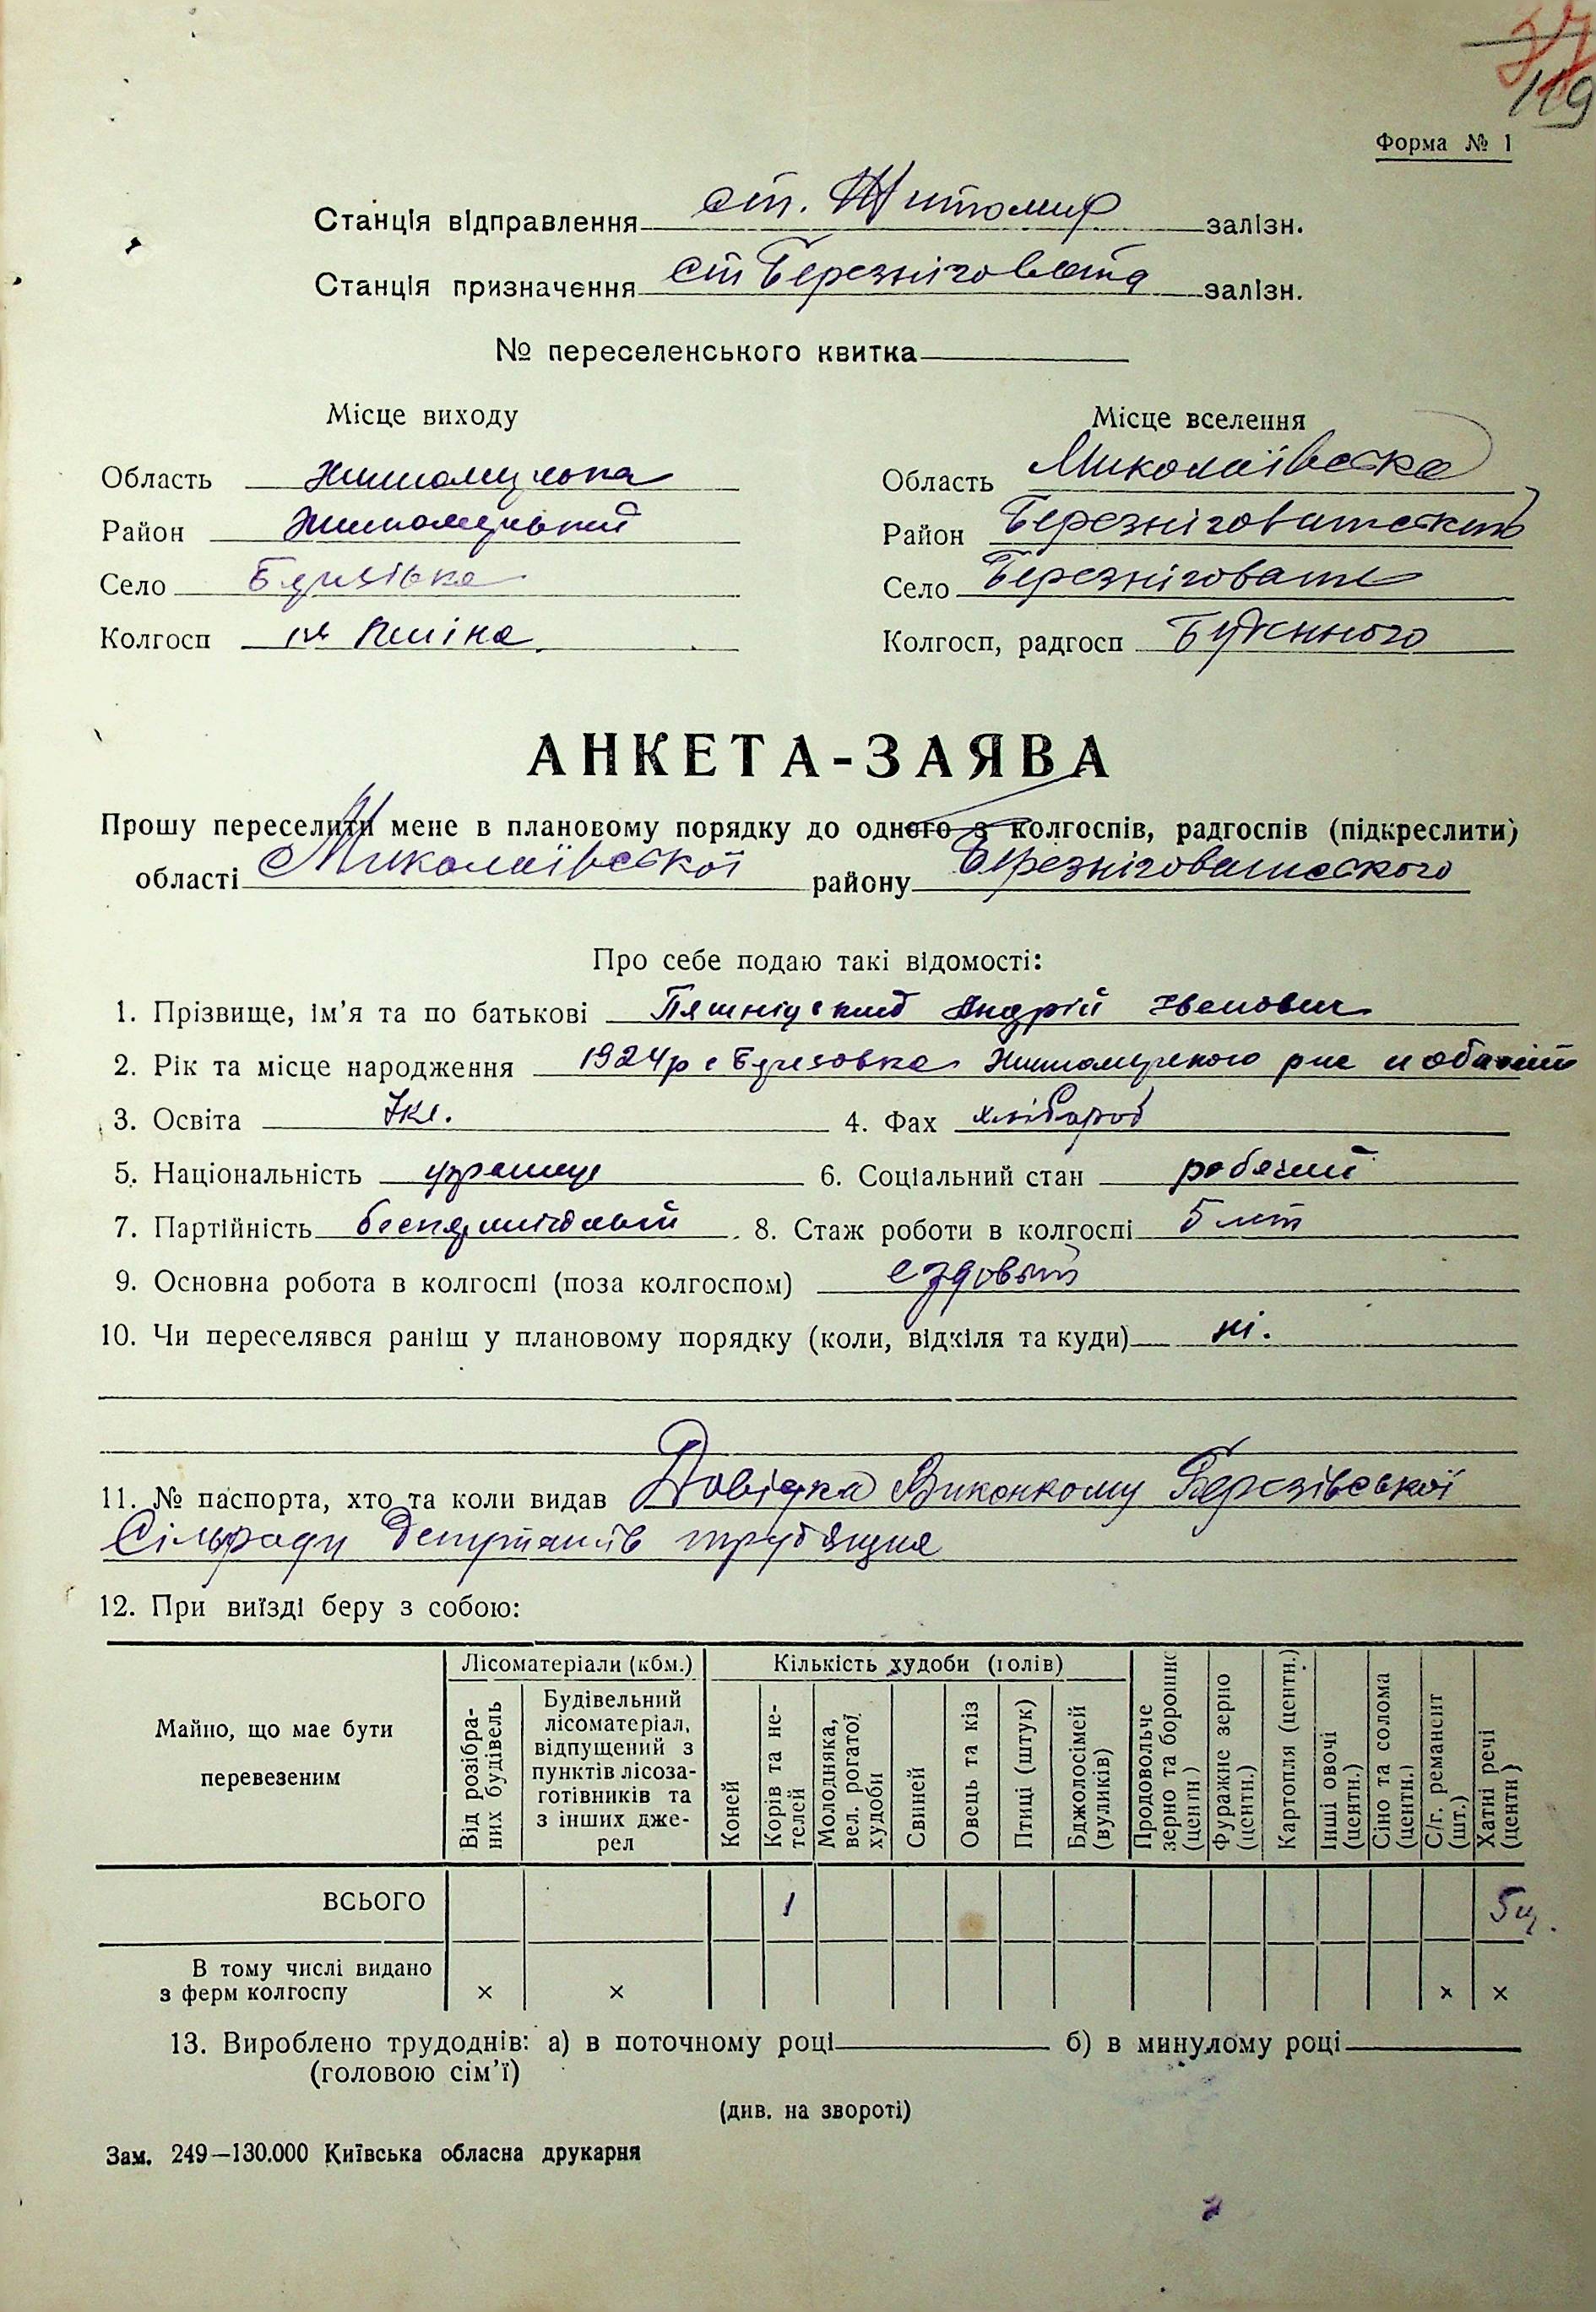 37
119
Форма № 1
Станція відправлення ст. Житомир залізн.
Станція призначення ст Березніговата залізн.
№ переселенського квитка
Місце виходу
Місце вселення
Область Житомирська
Область Миколаївська
Район Житомирський
Район Березніговатський
Село Березівка
Село Березнігувате
Колгосп ім Леніна
Колгосп, радгосп Будьонного
АНКЕТА-ЗАЯВА
Прошу переселити мене в плановому порядку до одного з колгоспів, радгоспів (підкреслити)
області Миколаївської району Березніговатського
Про себе подаю такі відомості:
1. Прізвище, ім’я та по батькові Пятніцький Андрій Іванович
2. Рік та місце народження 1924р с Березовка Житомирського р-ну и області
3. Освіта 7кл. 4. Фах хлібороб
5. Національність українец 6. Соціальний стан робочий
7. Партійність беспартійний 8. Стаж роботи в колгоспі 5 лет
9. Основна робота в колгоспі (поза колгоспом) ездовый
10. Чи переселявся раніш у плановому порядку (коли, відкіля та куди) ні.
11. № паспорта, хто та коли видав Довідка Виконкому Березівської
Сільради депутатів трудящих
12. При виїзді беру з собою:
Майно, що має бути перевезеним
Лісоматеріали (кбм.)
Від розібраних будівель
Будівельний лісоматеріал, відпущений з пунктів лісозаготівників та з інших джерел
Кількість худоби (голів)
Коней
Корів та нетелей
Молодняка, вел. рогатої худоби
Свиней
Овець та кіз
Птиці (штук)
Бджолосімей (вуликів)
Продовольче зерно та борошно (центн.)
Фуражне зерно (центн.)
Картопля (центн.)
Інші овочі (центн.)
Сіно та солома (центн.)
С/г. реманент (шт.)
Хатні речі (центн)
ВСЬОГО 1 5ц.
В тому числі видано
з ферм колгоспу × × × ×
13. Вироблено трудоднів: а) в поточному році б) в минулому році
(головою сім’ї)
(див. на звороті)
Зам. 249—130.000 Київська обласна друкарня